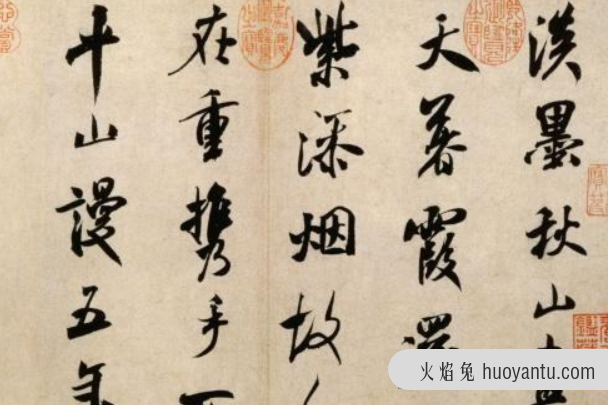 淡墨秋山
天暮霞還
紫添烟故
在重携手
平山謾五年
火焰兔 huoyantu.com